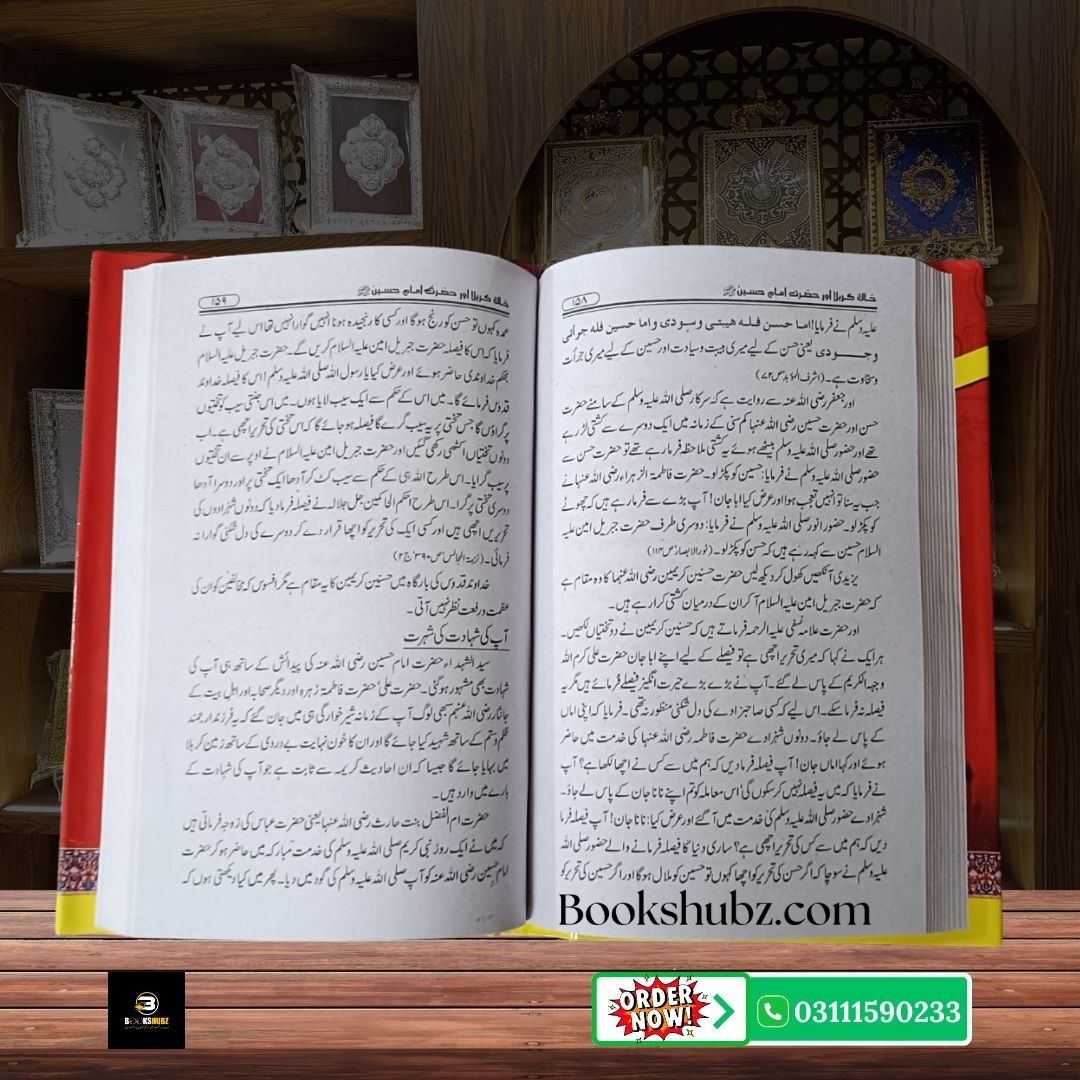 خاک کربلا اور حضرت امام حسین
۱۵۸
علیہ وسلم نے فرمایا! اما حسن فلہ ھیبتی وسؤدی واما حسین فلہ جرأتی
وجودی یعنی حسن کے لیے میری ہیبت وسیادت اور حسین کے لیے میری جرأت
وسخاوت ہے۔ (اشرف المؤبد ص ۷۲)
اور جعفر رضی اللہ عنہ سے روایت ہے کہ سرکار صلی اللہ علیہ وسلم کے سامنے حضرت
حسن اور حضرت حسین رضی اللہ عنہما کم سنی کے زمانہ میں ایک دوسرے سے کشتی لڑ رہے
تھے اور حضور صلی اللہ علیہ وسلم بیٹھے ہوئے یہ کشتی ملاحظہ فرما رہے تھے تو حضرت حسن سے
حضور صلی اللہ علیہ وسلم نے فرمایا: حسین کو پکڑ لو۔ حضرت فاطمۃ الزہراء رضی اللہ عنہا نے
جب یہ سنا تو انہیں تعجب ہوا اور عرض کیا ابا جان! آپ بڑے سے فرما رہے ہیں کہ چھوٹے
کو پکڑ لو۔ حضور انور صلی اللہ علیہ وسلم نے فرمایا: دوسری طرف حضرت جبریل امین علیہ
السلام حسین سے کہہ رہے ہیں کہ حسن کو پکڑ لو۔ (نور الابصار ص ۱۱۴)
یزیدی آنکھیں کھول کر دیکھ لیں حضرت حسنین کریمین رضی اللہ عنہما کا وہ مقام ہے
کہ حضرت جبریل امین علیہ السلام آ کر ان کے درمیان کشتی کرا رہے ہیں۔
اور حضرت علامہ نسفی علیہ الرحمہ فرماتے ہیں کہ حسنین کریمین نے دو تختیاں لکھیں۔
ہر ایک نے کہا کہ میری تحریر اچھی ہے تو فیصلے کے لیے اپنے ابا جان حضرت علی کرم اللہ
وجہہ الکریم کے پاس لے گئے۔ آپ نے بڑے بڑے حیرت انگیز فیصلے فرمائے ہیں مگر یہ
فیصلہ نہ فرما سکے۔ اس لیے کہ کسی صاحبزادے کی دل شکنی منظور نہ تھی۔ فرمایا کہ اپنی اماں
کے پاس لے جاؤ۔ دونوں شہزادے حضرت فاطمہ رضی اللہ عنہا کی خدمت میں حاضر
ہوئے اور کہا اماں جان! آپ فیصلہ فرما دیں کہ ہم میں سے کس نے اچھا لکھا ہے؟ آپ
نے فرمایا کہ میں یہ فیصلہ نہیں کر سکوں گی اس معاملہ کو تم اپنے نانا جان کے پاس لے جاؤ۔
شہزادے حضور صلی اللہ علیہ وسلم کی خدمت میں آ گئے اور عرض کیا: نانا جان! آپ فیصلہ فرما
دیں کہ ہم میں سے کس کی تحریر اچھی ہے؟ ساری دنیا کا فیصلہ فرمانے والے حضور صلی اللہ
علیہ وسلم نے سوچا کہ اگر حسن کی تحریر کو اچھا کہوں تو حسین کو ملال ہوگا اور اگر حسین کی تحریر کو
خاک کربلا اور حضرت امام حسین
۱۵۹
عمدہ کہوں تو حسن کو رنج ہوگا اور کسی کا رنجیدہ ہونا انہیں گوارا نہیں تھا اس لیے آپ نے
فرمایا کہ اس کا فیصلہ حضرت جبریل امین علیہ السلام کریں گے۔ حضرت جبریل علیہ السلام
بحکم خداوندی حاضر ہوئے اور عرض کیا یا رسول اللہ صلی اللہ علیہ وسلم! اس کا فیصلہ خداوند
قدوس فرمائے گا۔ میں اس کے حکم سے ایک سیب لایا ہوں۔ میں اس جنتی سیب کو تختیوں
پر گراؤں گا جس تختی پر یہ سیب گرے گا فیصلہ ہو جائے گا کہ اس تختی کی تحریر اچھی ہے۔ اب
دونوں تختیاں اکٹھی رکھی گئیں اور حضرت جبریل امین علیہ السلام نے اوپر سے ان تختیوں
پر سیب گرایا۔ اس طرح اللہ ہی کے حکم سے سیب کٹ کر آدھا ایک تختی پر اور دوسرا آدھا
دوسری تختی پر گرا۔ اس طرح احکم الحاکمین جل جلالہ نے فیصلہ فرما دیا کہ دونوں شہزادوں کی
تحریریں اچھی ہیں اور کسی ایک کی تحریر کو اچھا قرار دے کر دوسرے کی دل شکنی گوارا نہ
فرمائی۔ (نزہۃ المجالس ص ۳۹۰ ج ۲)
خداوند قدوس کی بارگاہ میں حسنین کریمین کا یہ مقام ہے مگر افسوس کہ مخالفین کو ان کی
عظمت ورفعت نظر نہیں آتی۔
آپ کی شہادت کی شہرت
سید الشہداء حضرت امام حسین رضی اللہ عنہ کی پیدائش کے ساتھ ہی آپ کی
شہادت بھی مشہور ہو گئی۔ حضرت علی، حضرت فاطمۃ زہرہ اور دیگر صحابہ اور اہل بیت کے
جانثار رضی اللہ عنہم سبھی لوگ آپ کے زمانہ شیر خوارگی ہی میں جان گئے کہ یہ فرزند ارجمند
ظلم وستم کے ساتھ شہید کیا جائے گا اور ان کا خون نہایت بے دردی کے ساتھ زمین کربلا
میں بہایا جائے گا جیسا کہ ان احادیث کریمہ سے ثابت ہے جو آپ کی شہادت کے
بارے میں وارد ہیں۔
حضرت ام الفضل بنت حارث رضی اللہ عنہا یعنی حضرت عباس کی زوجہ فرماتی ہیں
کہ میں نے ایک روز نبی کریم صلی اللہ علیہ وسلم کی خدمت مبارکہ میں حاضر ہو کر حضرت
امام حسین رضی اللہ عنہ کو آپ صلی اللہ علیہ وسلم کی گود میں دیا۔ پھر میں کیا دیکھتی ہوں کہ
Bookshubz.com
BOOKSHUBZ
ORDER
NOW!
03111590233